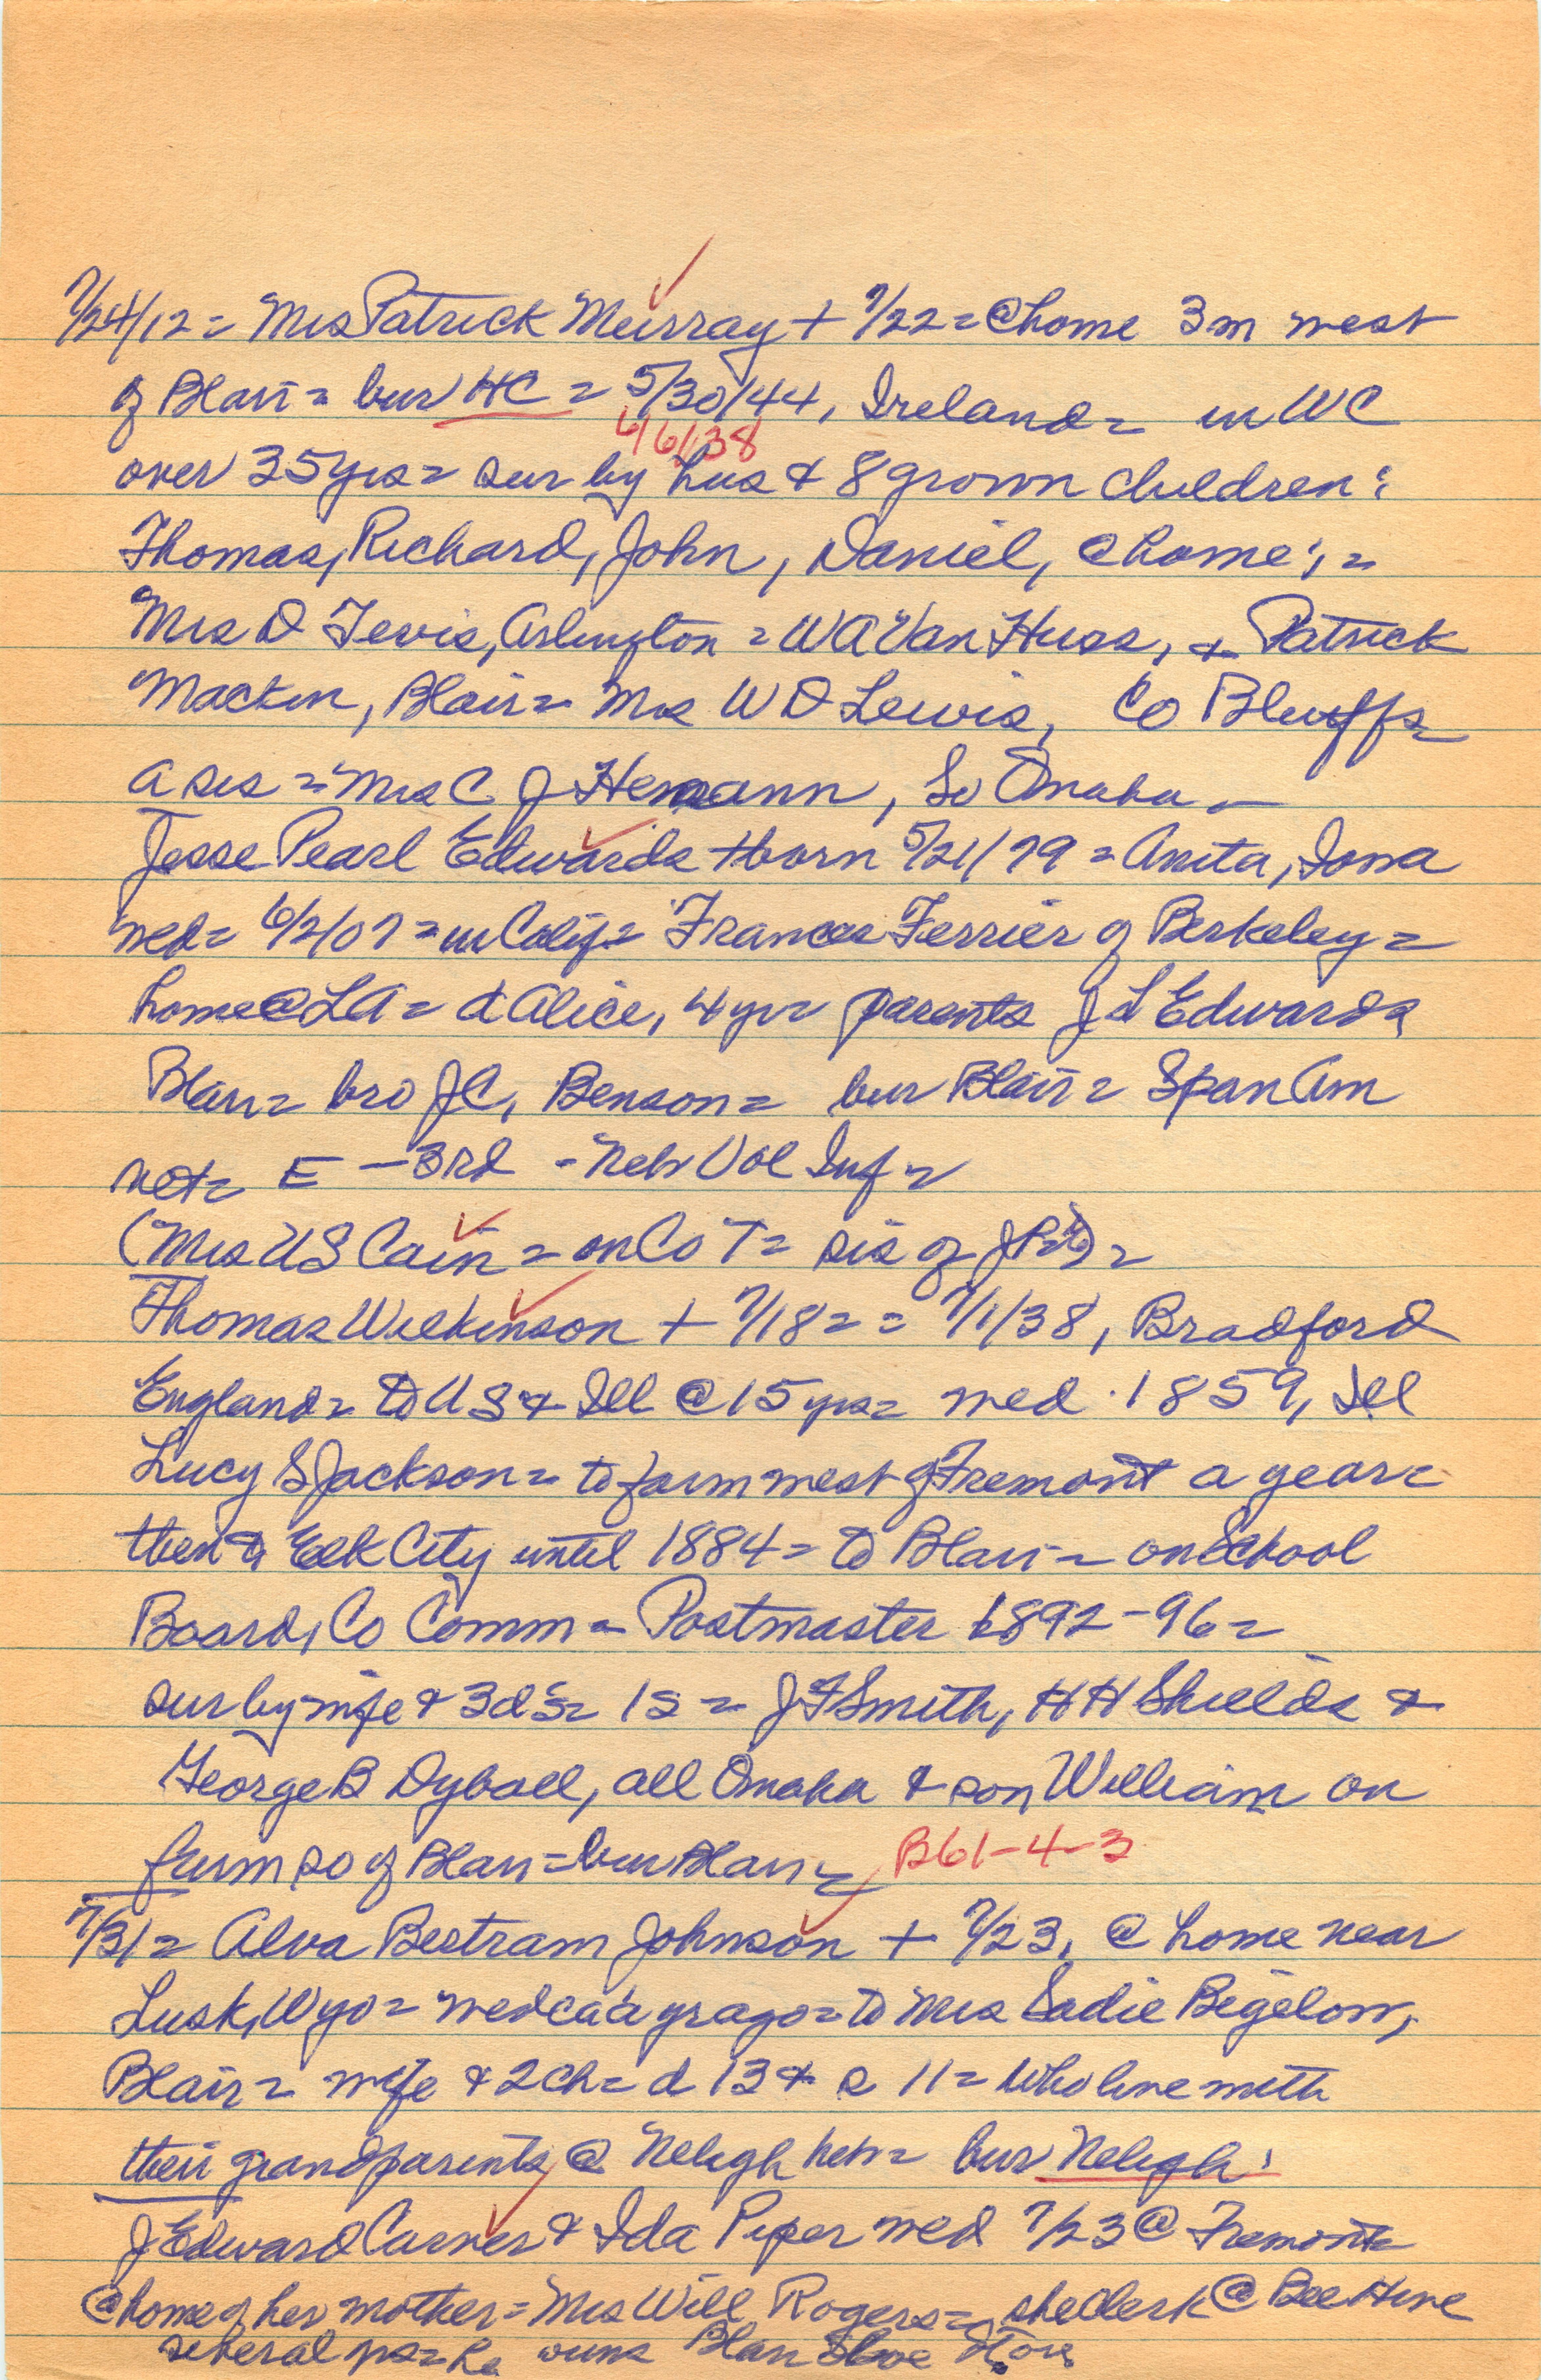 7/24/12 = Mrs Patrick Murray + 7/22 = @ home 3m west
of Blair = bur HC = 5/30/44, Ireland = in WC
6/6/38
over 35 yrs = sur by hus & 8 grown children:
Thomas, Richard, John, Daniel, @ home; =
Mrs D Tevis, Arlington = WA Van Huss, & Patrick
Macken, Blair = Mrs W D Lewis, Co Bluffs =
a sis = Mrs C J Hemann, So Omaha =
Jesse Pearl Edwards + born 5/21/79 = Anita, Iowa
wed = 6/2/07 = in Calif = Frances Ferrier of Berkeley =
home @ LA = d Alice, 4 yr = parents J L Edwards
Blair = bro JC, Benson = bur Blair = Span Am
vet = E - 3rd - Neb Vol Inf =
(Mrs US Cain = on Co T = sis of JP) =
Thomas Wilkinson + 7/18 = = 7/1/38, Bradford
England = to US & Ill @ 15 yrs = wed 1859, Ill
Lucy S Jackson = to farm west of Fremont a year =
then to Elk City until 1884 = to Blair = on School
Board, Co Comm = Postmaster 1892-96 =
sur by wife & 3 d's = 1 s = J F Smith, H H Shields &
George B Dyball, all Omaha & son William on
farm so of Blair = bur Blair = B61-4-3
7/31 = Alva Bertram Johnson + 7/23, @ home near
Lusk, Wyo = wed ca a yr ago = to Mrs Sadie Bigelow,
Blair = wife & 2 ch = d 13 & s 11 = who live with
their grandparents @ Neligh Neb = bur Neligh:
J Edward Carnes & Ida Piper wed 7/23 @ Fremont =
@ home of her mother = Mrs Will Rogers = she clerk @ Bee Hive
several yrs = he owns Blair Shoe Store